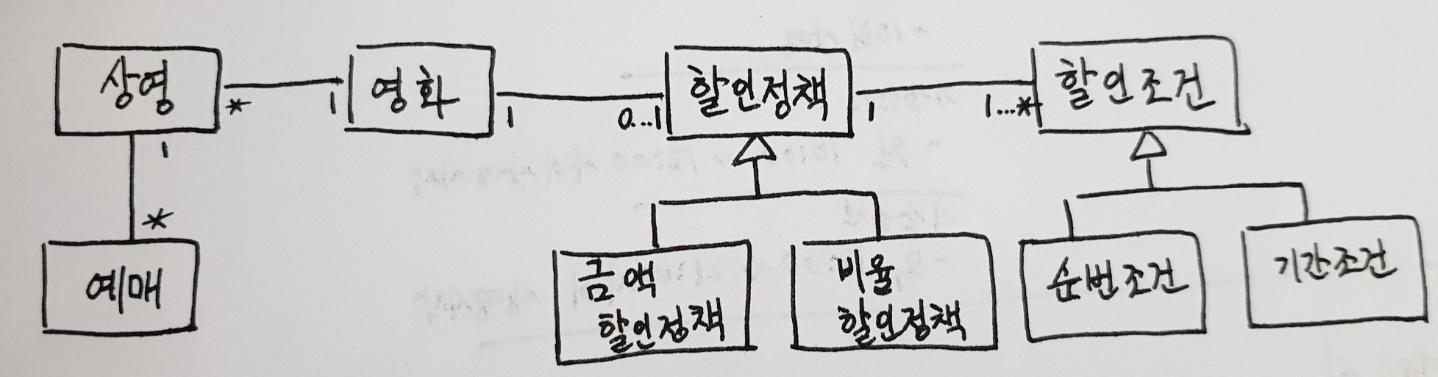 상영
* 1
영화
1 0...1
할인정책
1 1...*
할인조건
1
*
예매
금액
할인정책
비율
할인정책
순번조건
기간조건